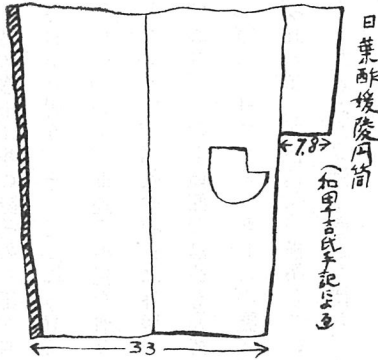 日葉酢媛陵円筒
(和田千吉氏手記による)
7.8
33